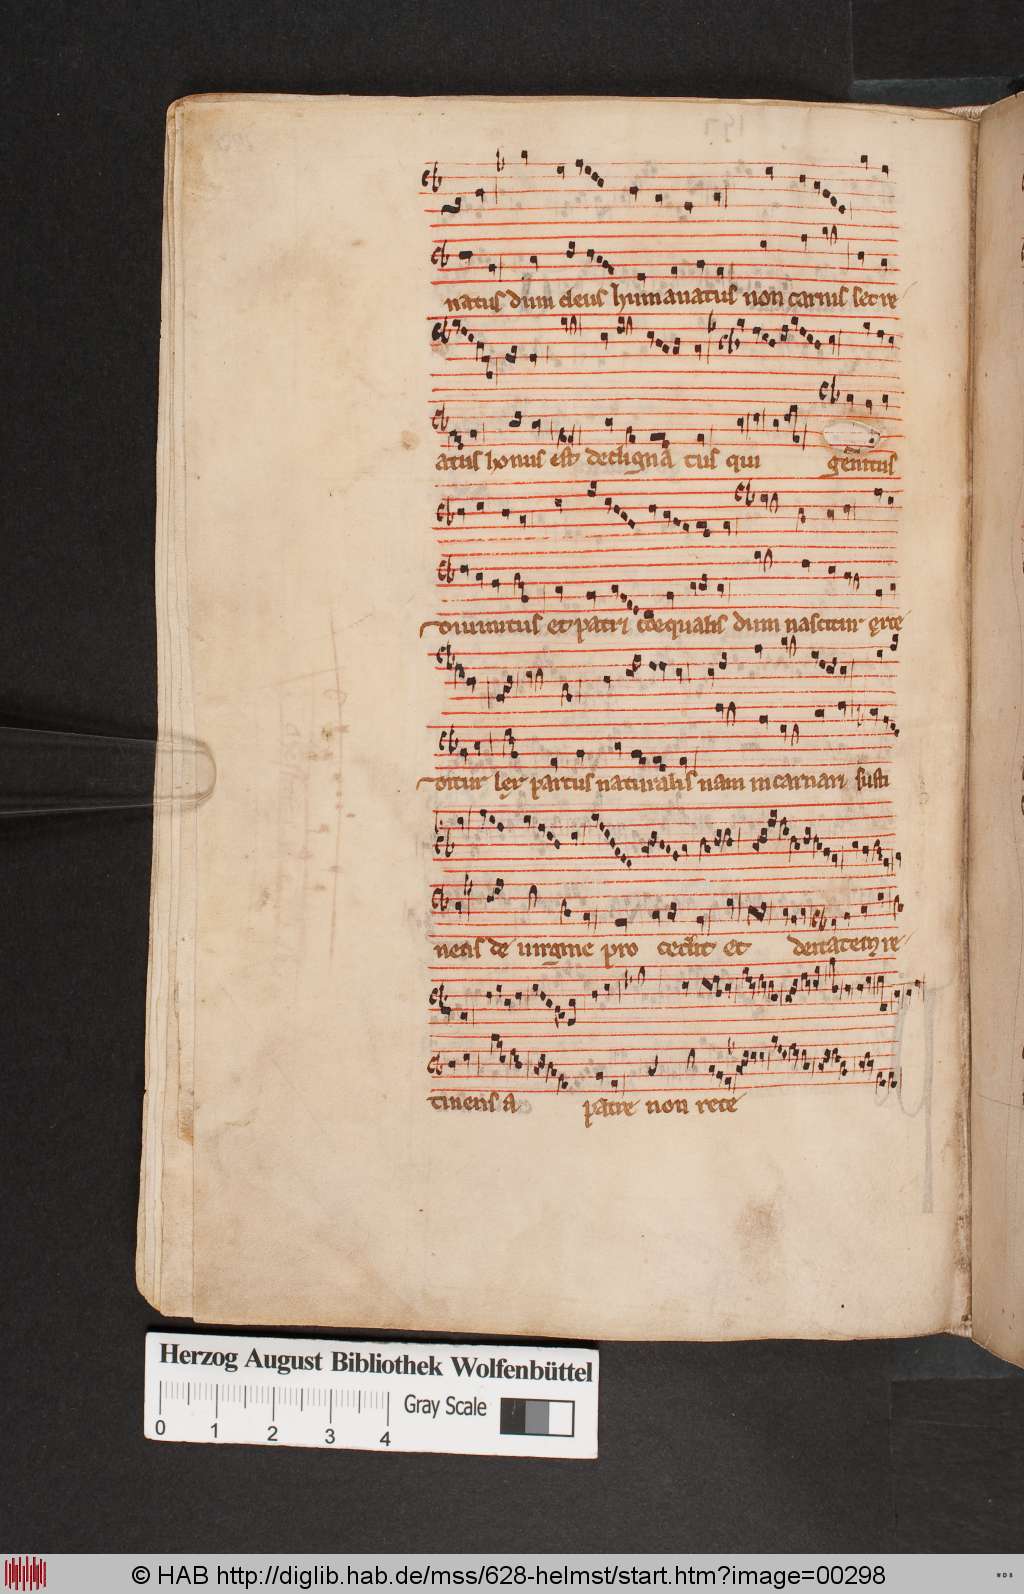 natus dum deus humanatus non carnis set re
atus honus est dedigna tus qui genitus
diuinitus et patri coequalis dum nascitur exce
ditur lex partus naturalis nam incarnari susti
nens de uirgine pro cedit et deitatem re
tinens a patre non rece
Herzog August Bibliothek Wolfenbüttel
Gray Scale
0 1 2 3 4
© HAB http://diglib.hab.de/mss/628-helmst/start.htm?image=00298